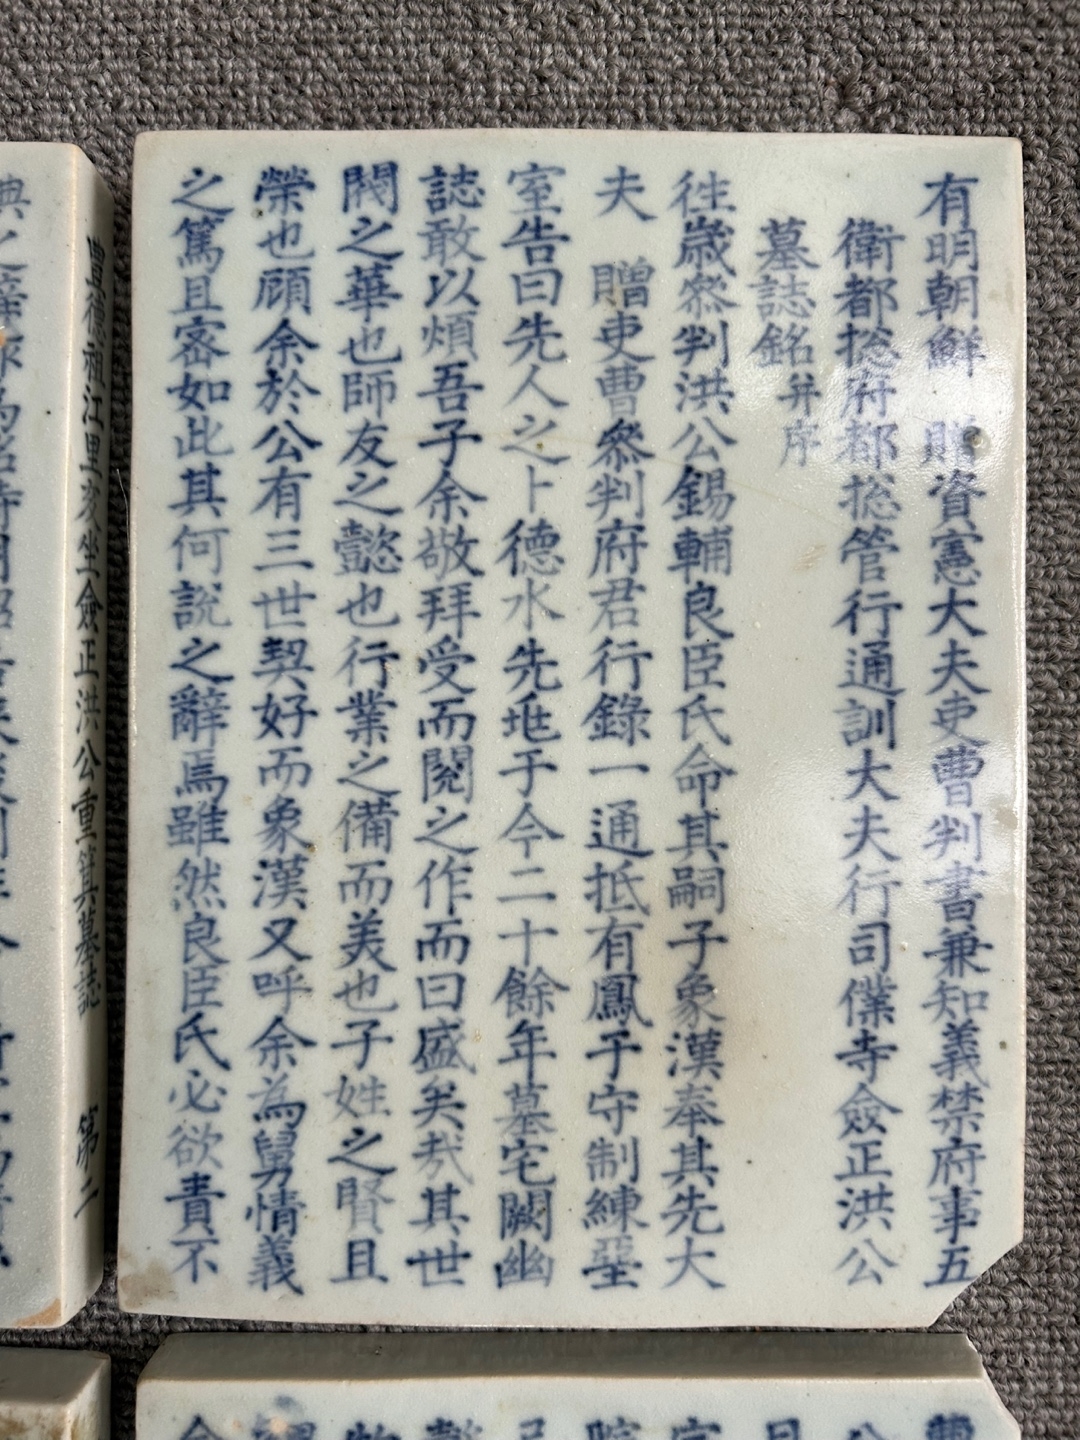 有明朝鮮 贈資憲大夫吏曹判書兼知義禁府事五
衛都摠府都摠管行通訓大夫行司僕寺僉正洪公
墓誌銘并序
徃歲叅判洪公錫輔良臣氏命其嗣子象漢奉其先大
夫 贈吏曹叅判府君行錄一通抵有鳳于守制練堊
室告曰先人之卜德水先兆于今二十餘年墓宅闕幽
誌敢以煩吾子余敬拜受而閱之作而曰盛矣哉其世
閥之華也師友之懿也行業之備而美也子姓之賢且
榮也顧余於公有三世契好而象漢又呼余為舅情義
之篤且密如此其何說之辭焉雖然良臣氏必欲責不
豊德祖江里亥坐僉正洪公重箕墓誌 第二